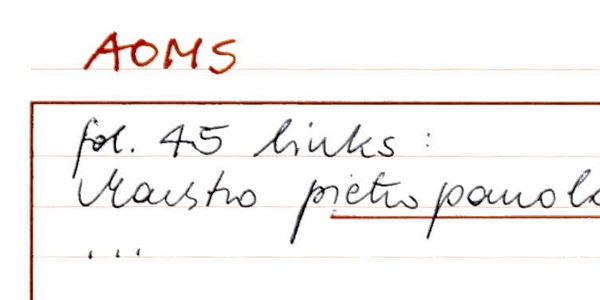 AOMS
fol. 45 links :
Maestro pietro panol
...